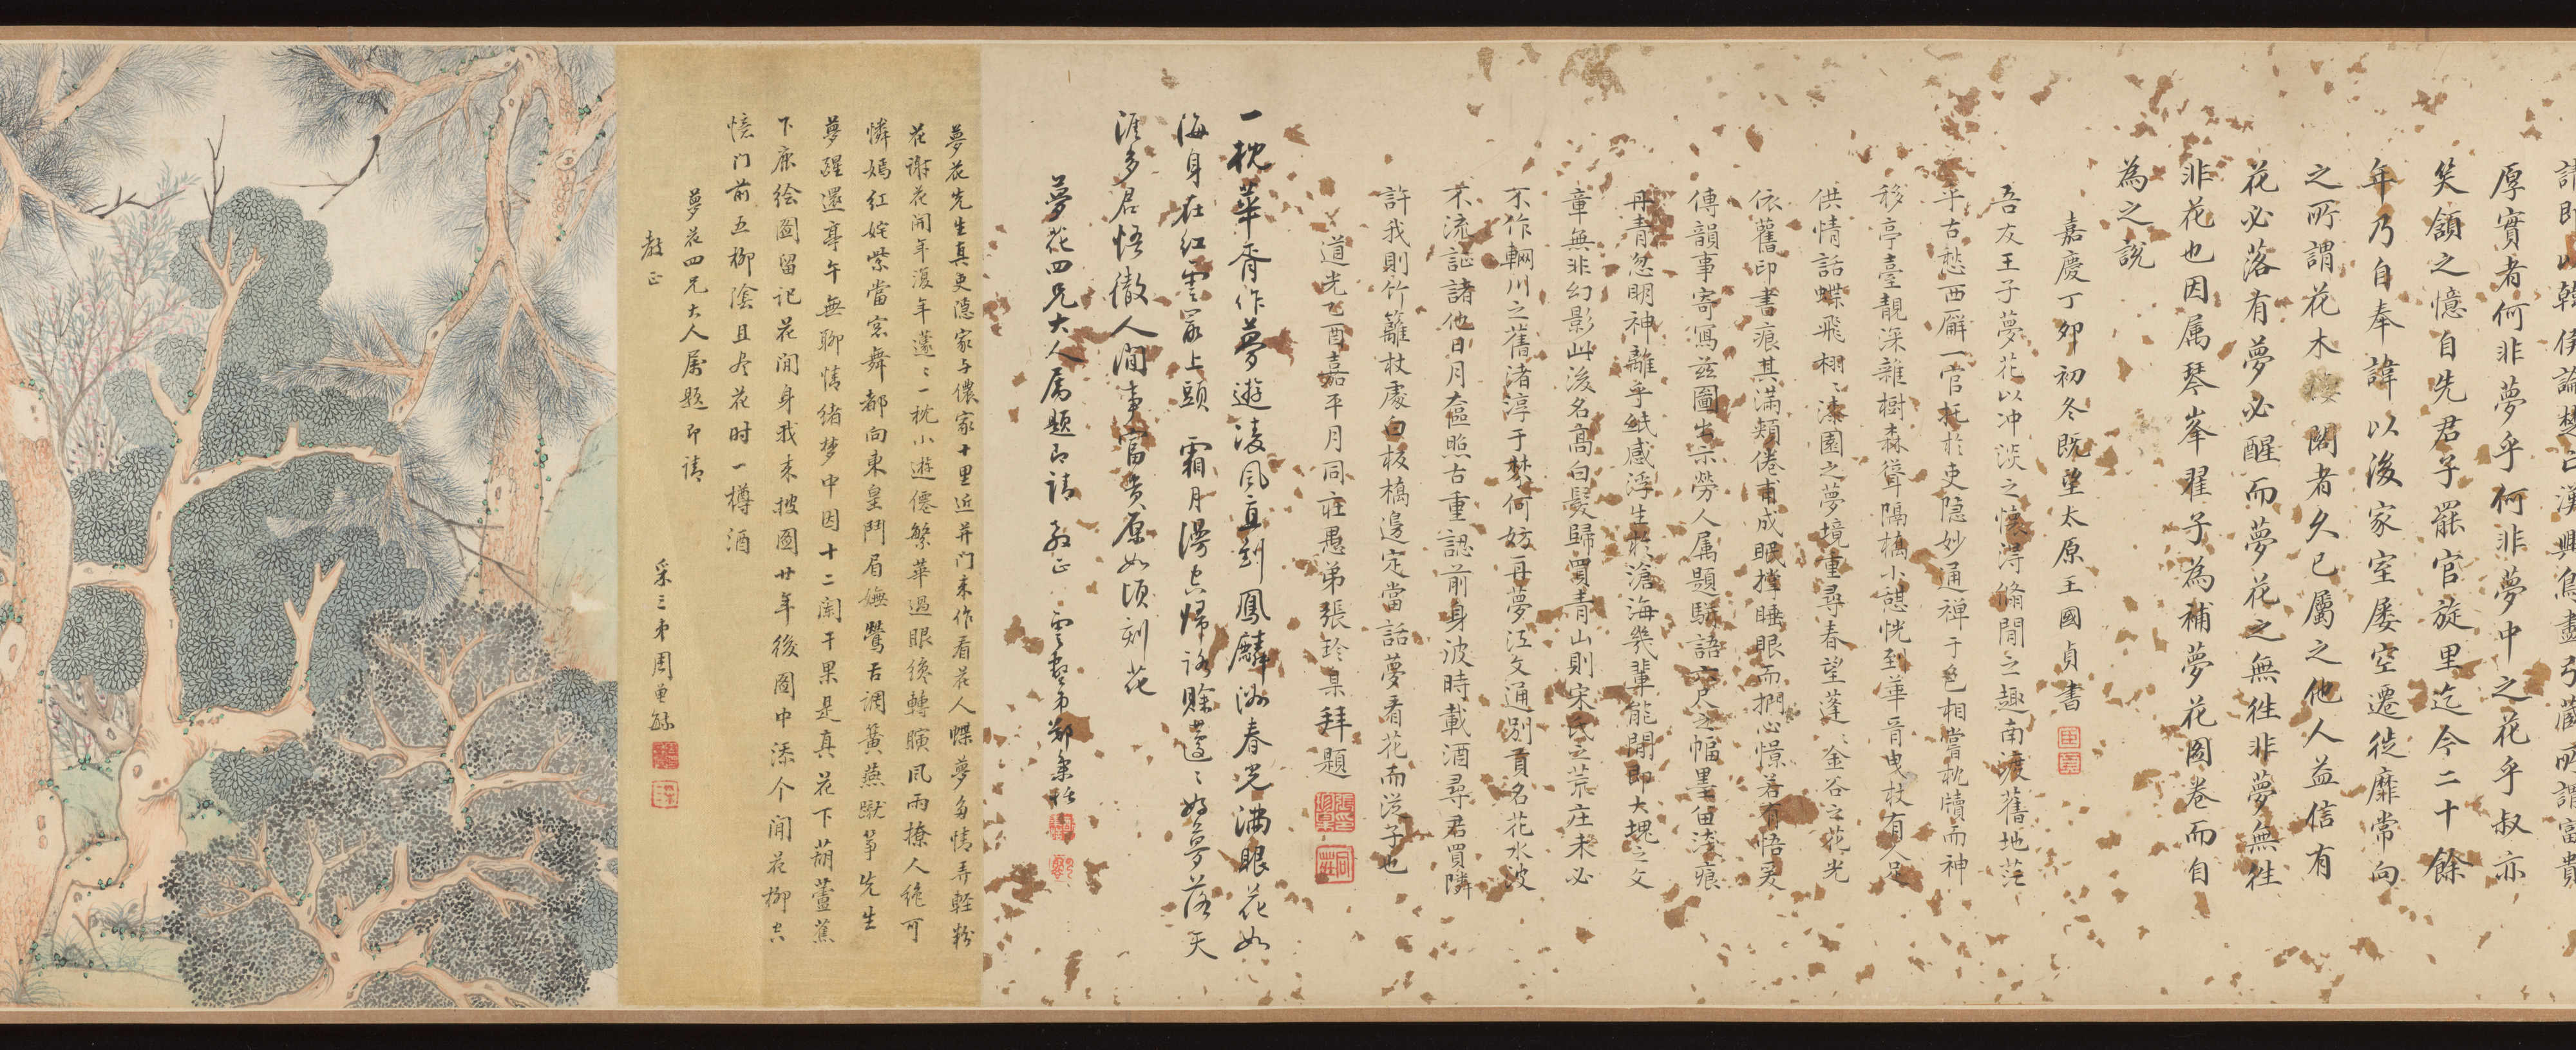 請即以韓侯論楚亡漢興鳥盡弓藏所謂富貴
厚實者何非夢乎何非夢中之花乎叔亦
笑頷之憶自先君子罷官旋里迄今二十餘
年乃自奉諱以後家室屢空遷徙靡常向
之所謂花木樓閣者久已屬之他人益信有
花必落有夢必醒而夢花之無徃非夢無徃
非花也因属琴峯翟子為補夢花圖卷而自
為之說
嘉慶丁卯初冬既望太原王國貞書
吾友王子夢花以冲淡之懷得脩閒之趣南渡舊地茫
平古愁西廨一官托於吏隐妙通禅于色相嘗枕牘而神
移亭臺靚深雜樹森聳隔橋小憩恍到華胥曳杖有人足
供情話蝶飛栩ミ漆園之夢境重尋春望蓬ミ金谷之花光
依舊印書痕其滿頰倦甫成眠撑睡眼而捫心憬若有悟爰
傳韻事寄寫兹圖出示勞人属題駢語六尺之幅墨宙淺痕
丹青忽明神離乎紙感浮生於滄海幾輩能閒即大塊之文
章無非幻影此後名高白髮歸買青山則宋氏之荒庄未必
不作輞川之舊渚淳于棼何妨再夢江文通别貢名花水波
不流証諸他日月奩照古重認前身波時載酒尋君買隣
許我則竹籬杖處白板橋邊定當話夢看花而從子也
道光乙酉嘉平月同莊愚弟張珍臬拜題
一枕華胥作夢遊淩風直到鳳麟洲春光滿眼花如
海身在紅雲最上頭　霜月漫空帰路賒蘧ミ好夢落天
涯多君悟徹人間事富貴原如頃刻花
夢花四兄大人属題即請教正
夢花先生真吏隐家与儂家十里近并门来作看花人蝶夢多情弄輕粉
花謝花開年復年蘧ミ一枕小遊僊繁華過眼終轉瞚風雨撩人絶可
憐嫣紅姹紫當窓舞都向東皇鬥眉嫵鶯舌調簧燕蹴筝先生
夢醒還亭午無聊情緒梦中因十二闌干果是真花下葫蘆蕉
下鹿绘圖留記花間身我来披图廿年後图中添个閒花柳空
憶门前五柳陰且尽花时一樽酒
夢花四兄大人属题即请
教正
采三弟周曾毓